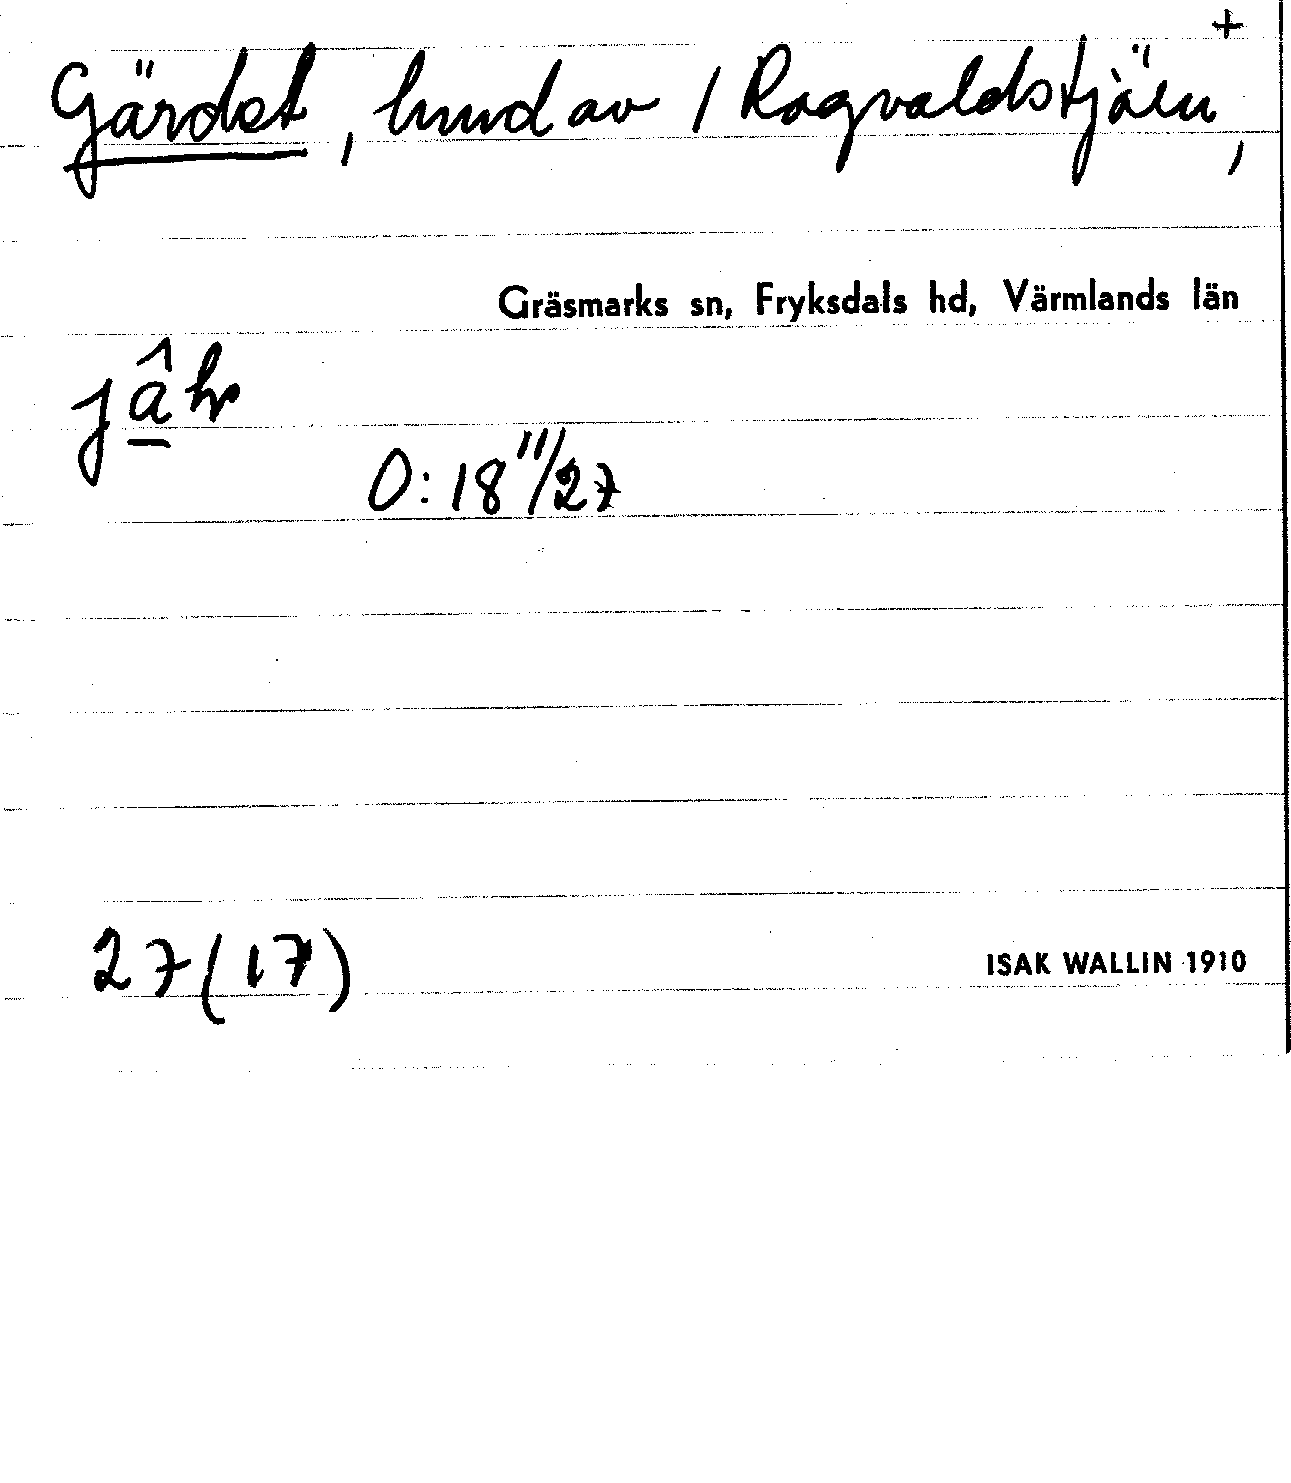 +
Gärdet, hmd av 1 Ragvaldstjäen,
Gräsmarks sn, Fryksdals hd, Värmlands län
O: 18 11/27
27(17)
ISAK WALLIN 1910